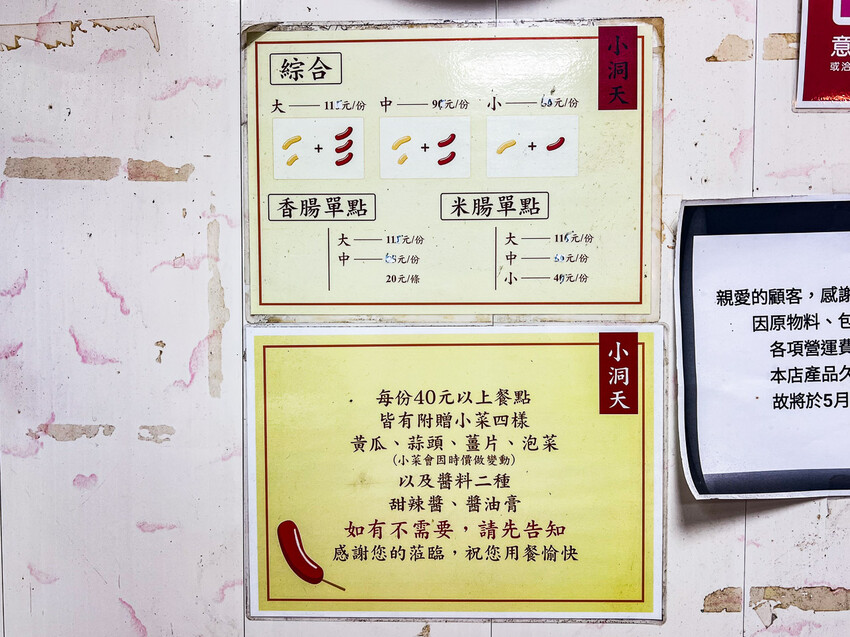 小洞天
綜合
大 —— 115元/份 中 —— 95元/份 小 —— 60元/份
+ + +
香腸單點
大 —— 115元/份
中 —— 65元/份
20元/條
米腸單點
大 —— 115元/份
中 —— 60元/份
小 —— 40元/份
小洞天
每份40元以上餐點
皆有附贈小菜四樣
黃瓜、蒜頭、薑片、泡菜
(小菜會因時價做變動)
以及醬料二種
甜辣醬、醬油膏
如有不需要，請先告知
感謝您的蒞臨，祝您用餐愉快
意
或洽
親愛的顧客，感謝
因原物料、包
各項營運費
本店產品久
故將於5月